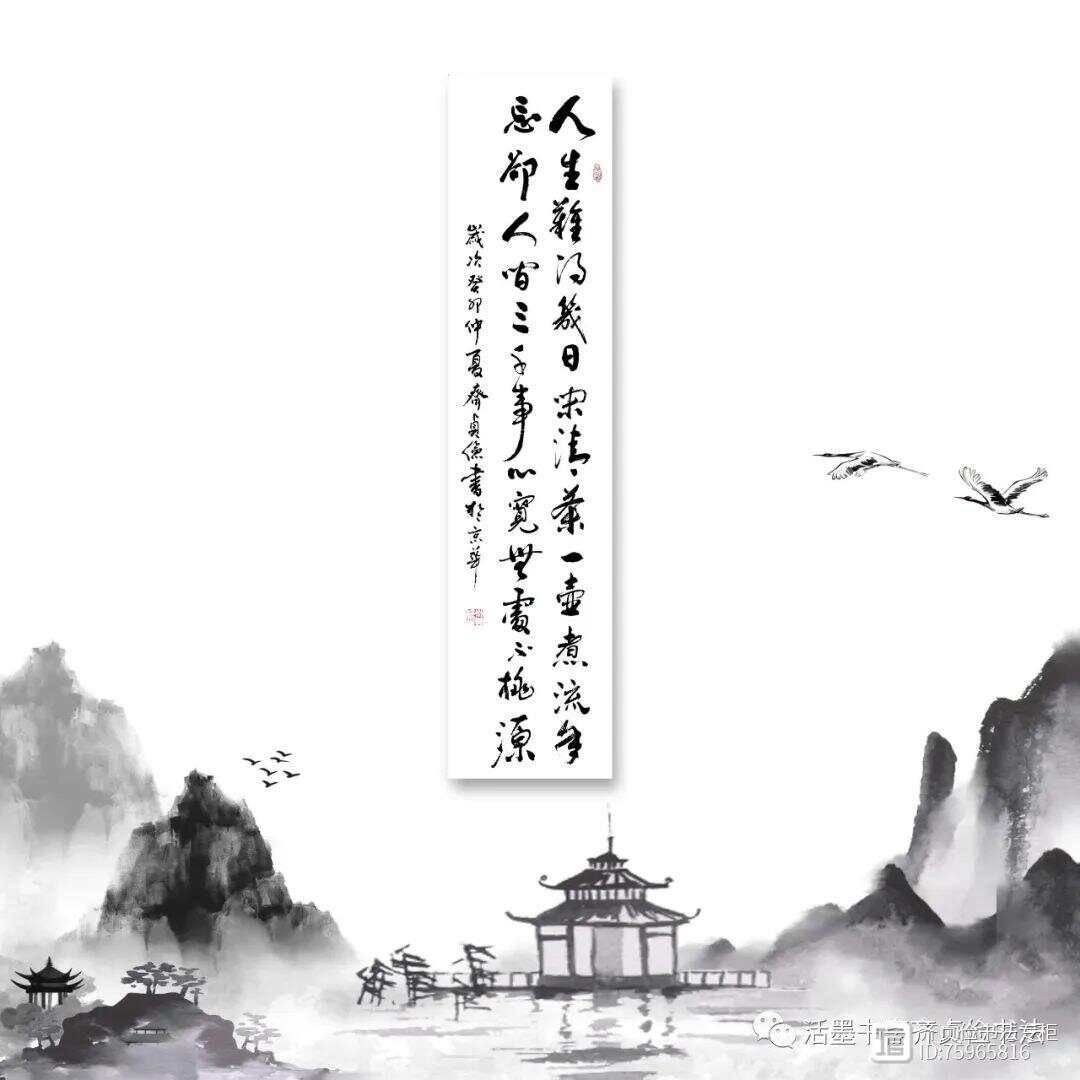 人生難得幾日閑清茶一壺煮流年
忘卻人間三千事心寬無處不桃源
歲次癸卯仲夏齊貞儉書於京華
活墨
ID:75965816